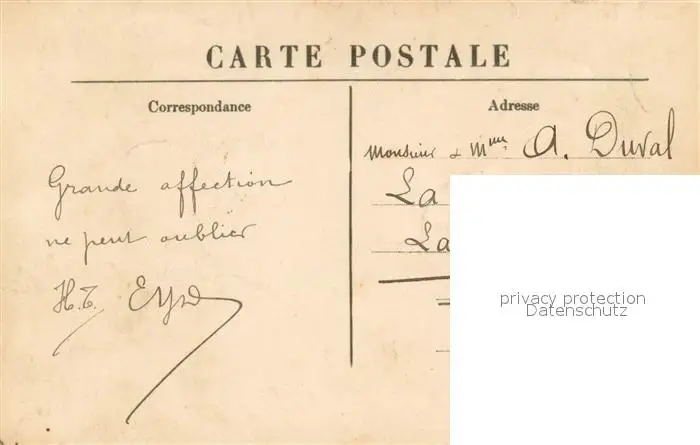 CARTE POSTALE
Correspondance
Adresse
Grande affection
ne peut oublier
H.T.
Monsieur & Mme A. Duval
La
La
privacy protection
Datenschutz